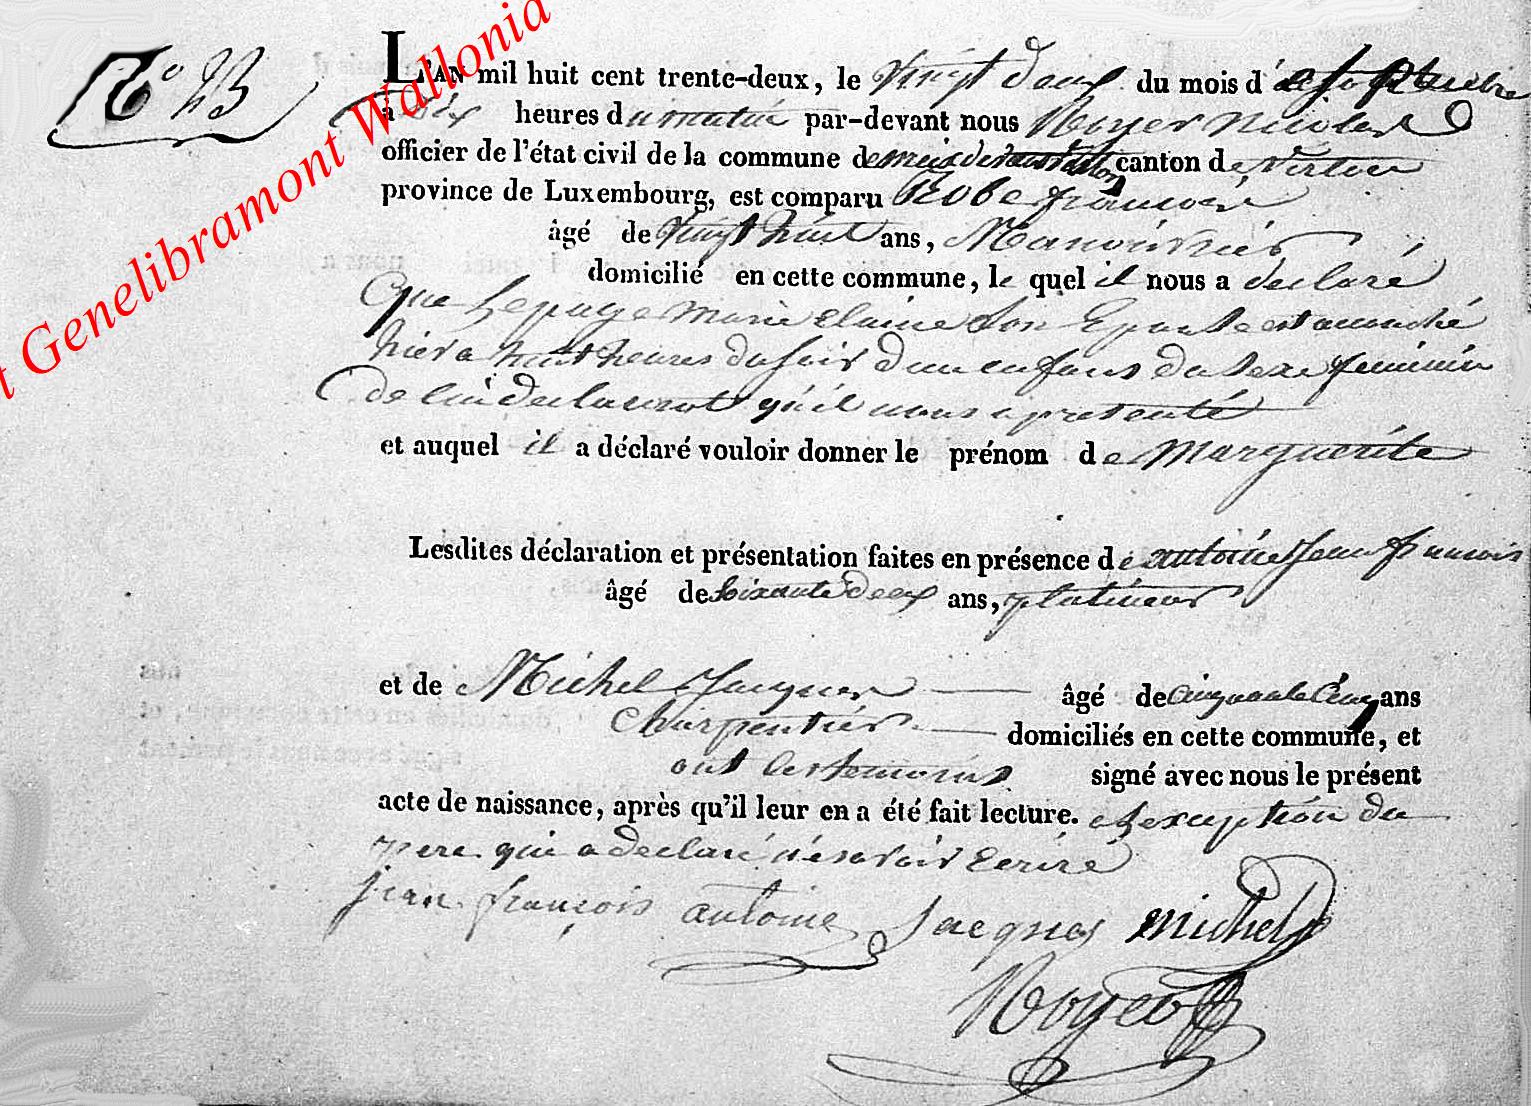 N° 23
L'AN mil huit cent trente-deux, le vingt deux du mois d' de Septembre
à dix heures du matin par-devant nous Noyer Nicolas
officier de l'état civil de la commune de meix devant virton canton de Virton
province de Luxembourg, est comparu Robe françois
âgé de vingt huit ans, Manouvrier
domicilié en cette commune, le quel il nous a declaré
que Lepage marie Elaine Son Epouse est accouché
hier a huit heures du soir d'un enfant du Sexe feminin
de lui declarant qu'il nous a presenté
et auquel il a déclaré vouloir donner le prénom de marguerite
Lesdites déclaration et présentation faites en présence de antoine Jean françois
âgé de Soixante deux ans, platineur
et de Michel Jacques âgé de cinquante cinq ans
Charpentier domiciliés en cette commune, et
ont les temoins signé avec nous le présent
acte de naissance, après qu'il leur en a été fait lecture. a l'exception du
pere qui a declaré ne savoir Ecrire
jean françois antoine Jacques michel
Noyer
t Genelibramont Wallonia